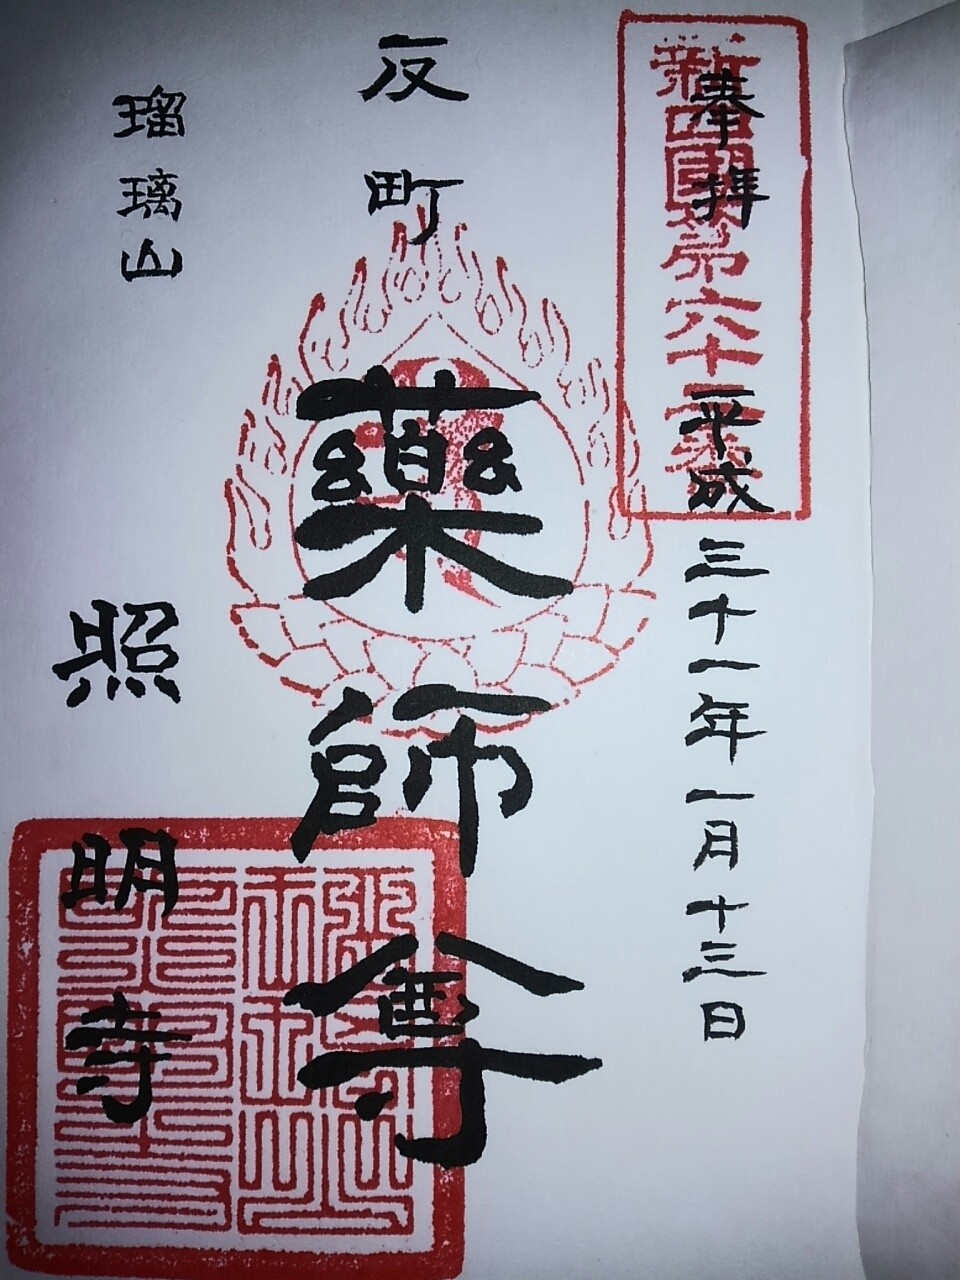 奉拝
平成三十一年一月十三日
新四國第六十
反町
藥師尊
瑠璃山
照明寺